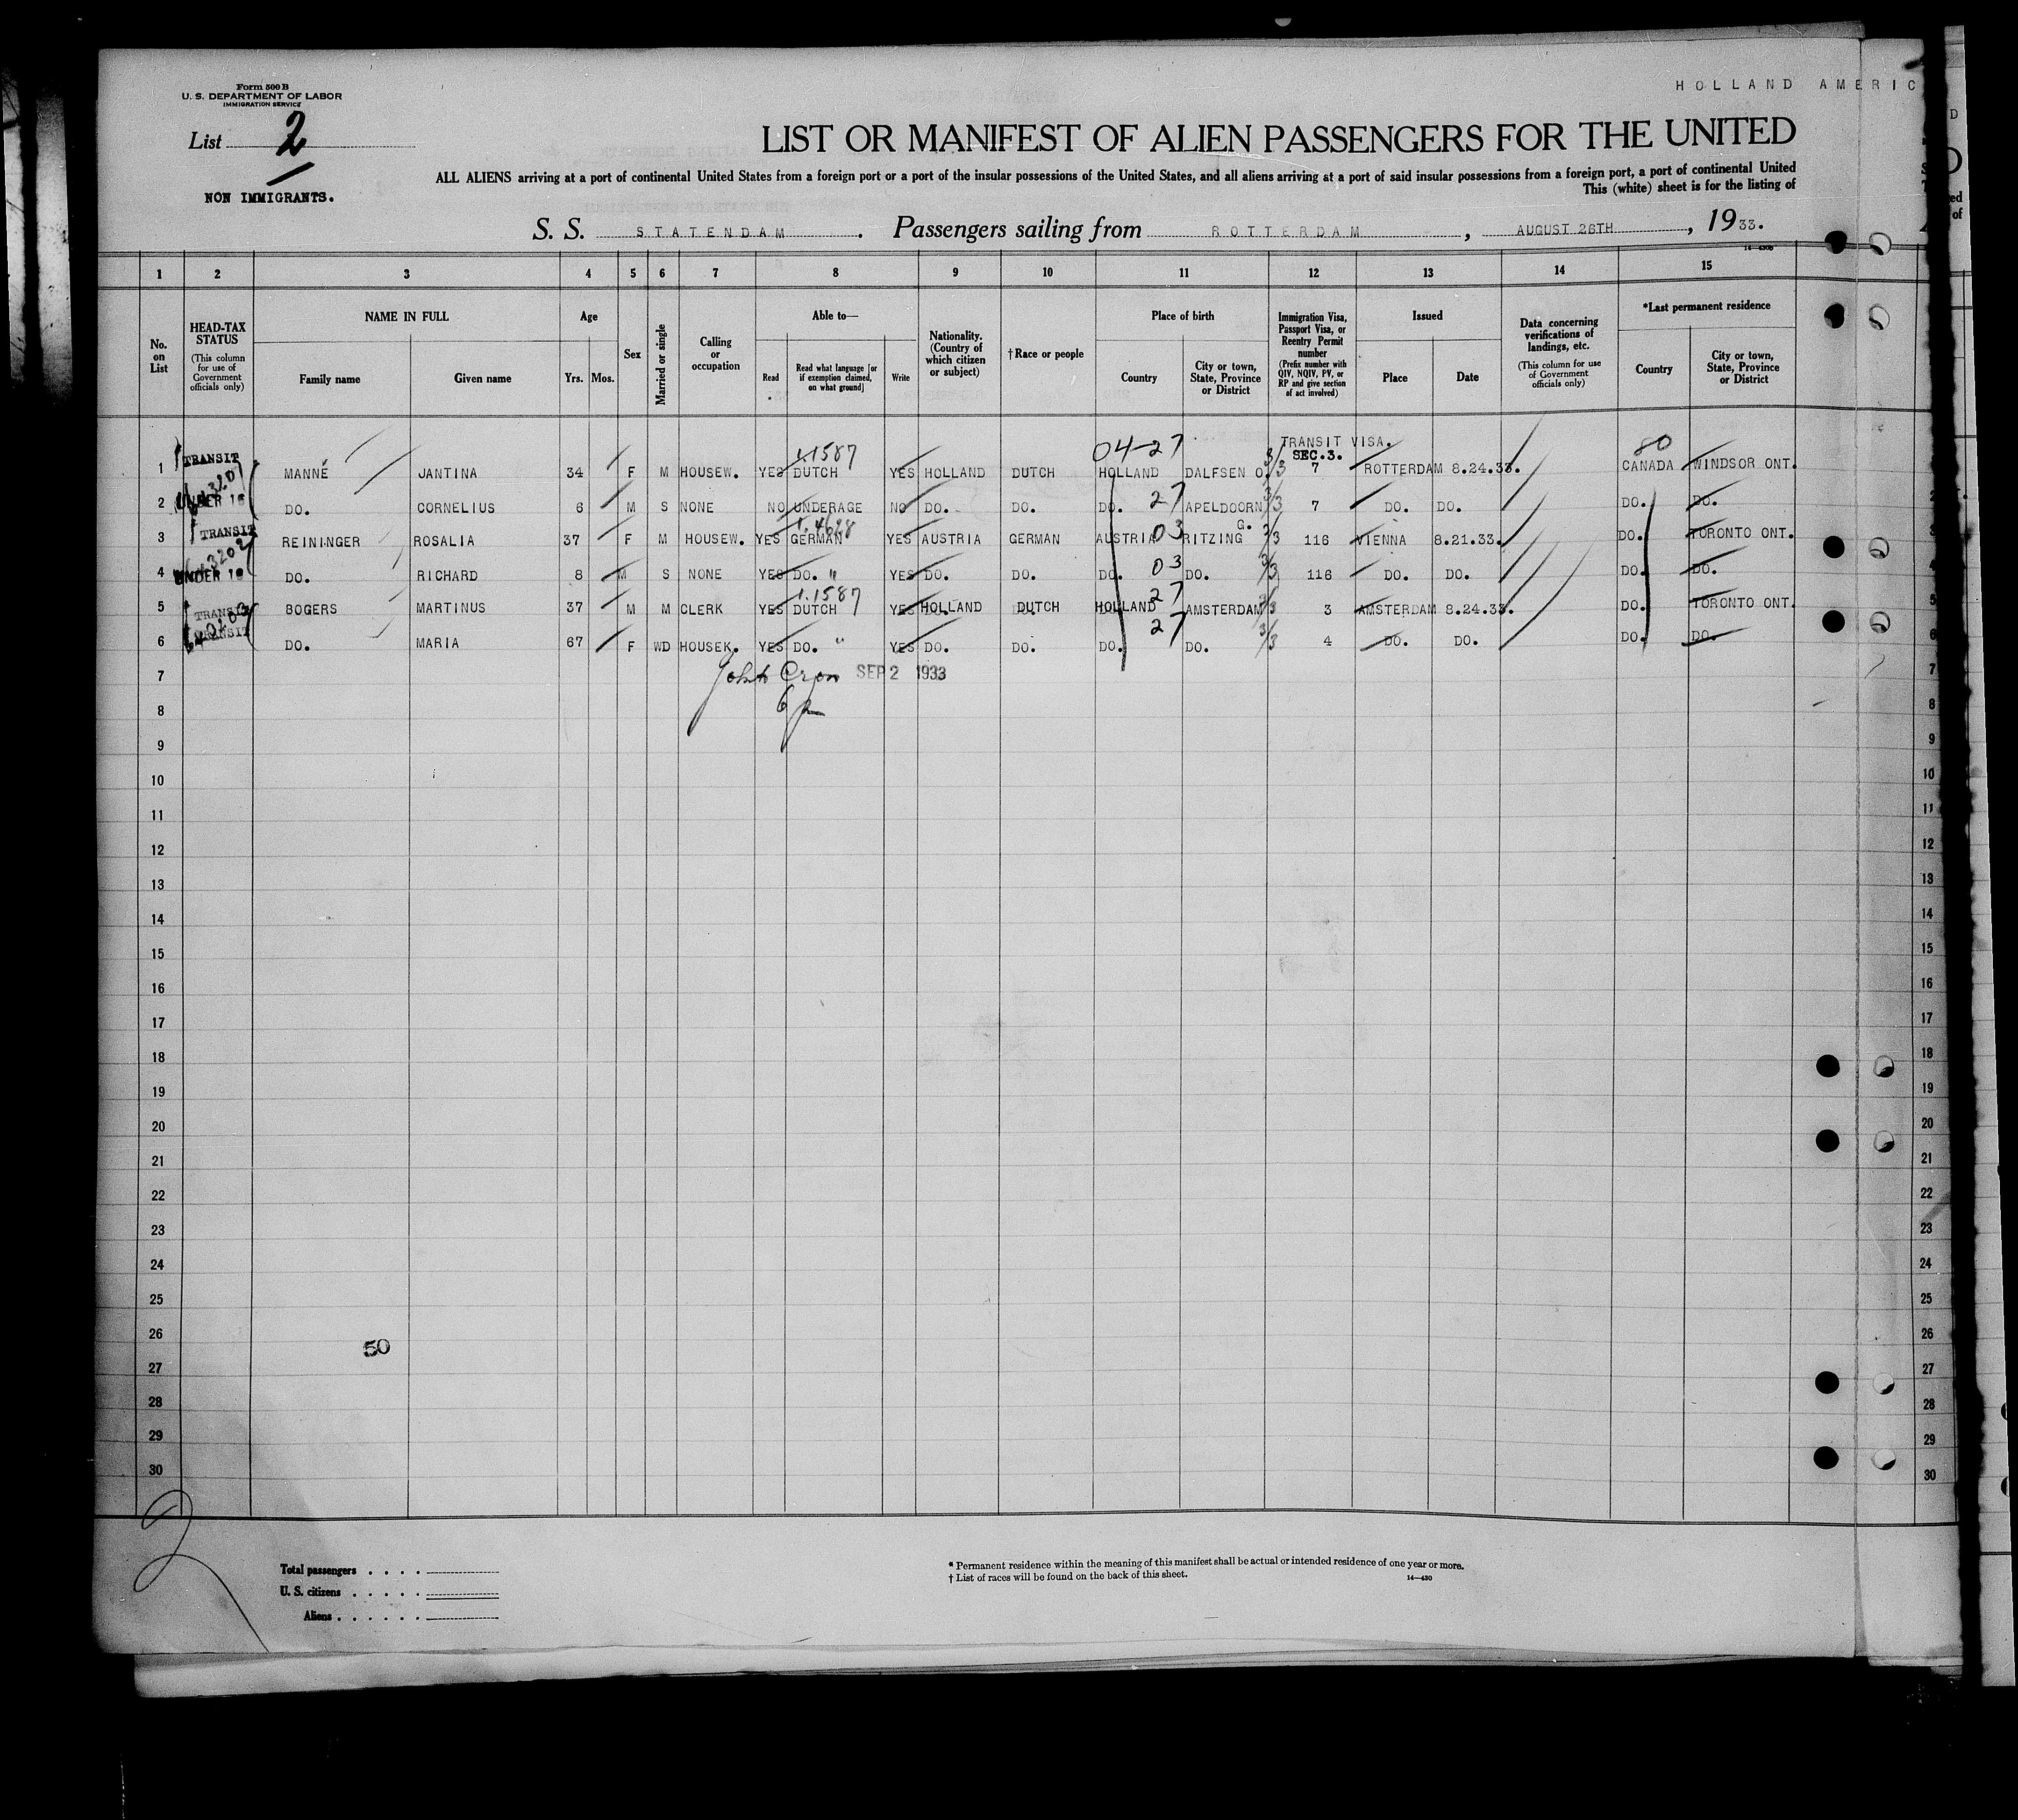 Form 500 B
U. S. DEPARTMENT OF LABOR
IMMIGRATION SERVICE
HOLLAND AMERIC
List 2
NON IMMIGRANTS.
LIST OR MANIFEST OF ALIEN PASSENGERS FOR THE UNITED
ALL ALIENS arriving at a port of continental United States from a foreign port or a port of the insular possessions of the United States, and all aliens arriving at a port of said insular possessions from a foreign port, a port of continental United
This (white) sheet is for the listing of
S. S. STATENDAM. Passengers sailing from ROTTERDAM, AUGUST 26TH, 1933.
1 2 3 4 5 6 7 8 9 10 11 12 13 14 15
No. on List
HEAD-TAX STATUS (This column for use of Government officials only)
NAME IN FULL Family name Given name
Age Yrs. Mos.
Sex
Married or single
Calling or occupation
Able to— Read Read what language [or if exemption claimed, on what ground] Write
Nationality. (Country of which citizen or subject)
†Race or people
Place of birth Country City or town, State, Province or District
Immigration Visa, Passport Visa, or Reentry Permit number (Prefix number with QIV, NQIV, PV, or RP and give section of act involved)
Issued Place Date
Data concerning verifications of landings, etc. (This column for use of Government officials only)
*Last permanent residence Country City or town, State, Province or District
1.1587 04-27 TRANSIT VISA. SEC.3. 80
1 TRANSIT MANNÉ JANTINA 34 F M HOUSEW. YES DUTCH YES HOLLAND DUTCH HOLLAND DALFSEN O. 3/3 7 ROTTERDAM 8.24.33. CANADA WINDSOR ONT.
2 UNDER 16 DO. CORNELIUS 6 M S NONE NO UNDERAGE NO DO. DO. DO. 27 APELDOORN 3/3 7 DO. DO. DO. DO.
1.4628 G.
3 TRANSIT REININGER ROSALIA 37 F M HOUSEW. YES GERMAN YES AUSTRIA GERMAN AUSTRIA 03 RITZING 3/3 116 VIENNA 8.21.33. DO. TORONTO ONT.
4 UNDER 16 DO. RICHARD 8 M S NONE YES DO. " YES DO. DO. DO. 03 DO. 3/3 116 DO. DO. DO. DO.
1.1587 27
5 TRANSIT BOGERS MARTINUS 37 M M CLERK YES DUTCH YES HOLLAND DUTCH HOLLAND AMSTERDAM 3/3 3 AMSTERDAM 8.24.33. DO. TORONTO ONT.
6 TRANSIT DO. MARIA 67 F WD HOUSEK. YES DO. " YES DO. DO. DO. 27 DO. 3/3 4 DO. DO. DO. DO.
7 SEP 2 1933 7
8 8
9 9
10 10
11 11
12 12
13 13
14 14
15 15
16 16
17 17
18 18
19 19
20 20
21 21
22 22
23 23
24 24
25 25
26 50 26
27 27
28 28
29 29
30 30
Total passengers
U. S. citizens
Aliens
* Permanent residence within the meaning of this manifest shall be actual or intended residence of one year or more.
† List of races will be found on the back of this sheet.
14—430